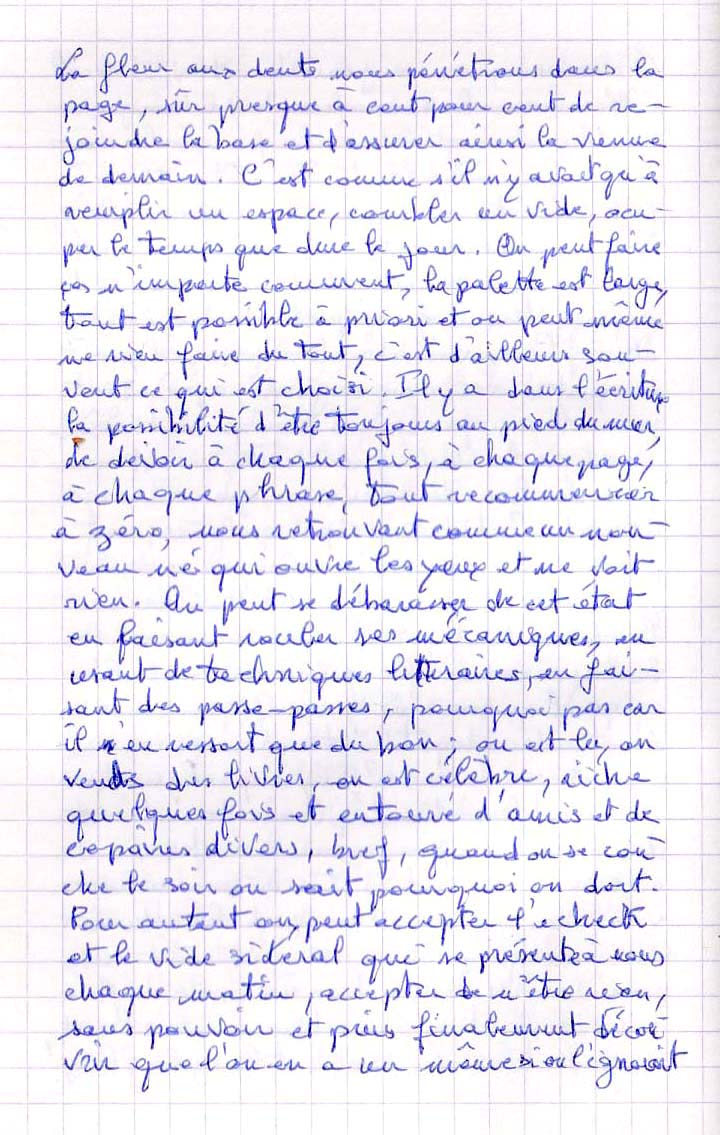 La fleur aux dents nous pénétrons dans la
page, sûr presque à cent pour cent de re-
joindre la base et d'assurer ainsi la venue
de demain. C'est comme s'il n'y avait qu'à
remplir un espace, combler un vide, ocu-
per le temps que dure le jour. On peut faire
ça n'importe comment, la palette est large,
tout est possible à priori et on peut même
ne rien faire du tout, c'est d'ailleurs sou-
vent ce qui est choisi. Il y a dans l'écriture
la possibilité d'être toujours au pied du mur,
de devoir à chaque fois, à chaque page,
à chaque phrase, tout recommencer
à zéro, nous retrouvant comme un nou-
veau né qui ouvre les yeux et ne voit
rien. On peut se débarasser de cet état
en faisant rouler ses mécaniques, en
usant de techniques littéraires, en fai-
sant des passe-passes, pourquoi pas car
il n'en ressort que du bon ; on est lu, on
vends des livres, on est célèbre, riche
quelques fois et entouré d'amis et de
copains divers, bref, quand on se cou-
che le soir on sait pourquoi on dort.
Pour autant on peut accepter l'echeck
et le vide sidéral qui se présente à nous
chaque matin, accepter de n'être rien,
sans pouvoir et puis finalement décou
vrir que l'on en a un même si on l'ignorait